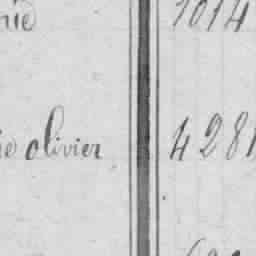 nie 1014
ie olivier 4281